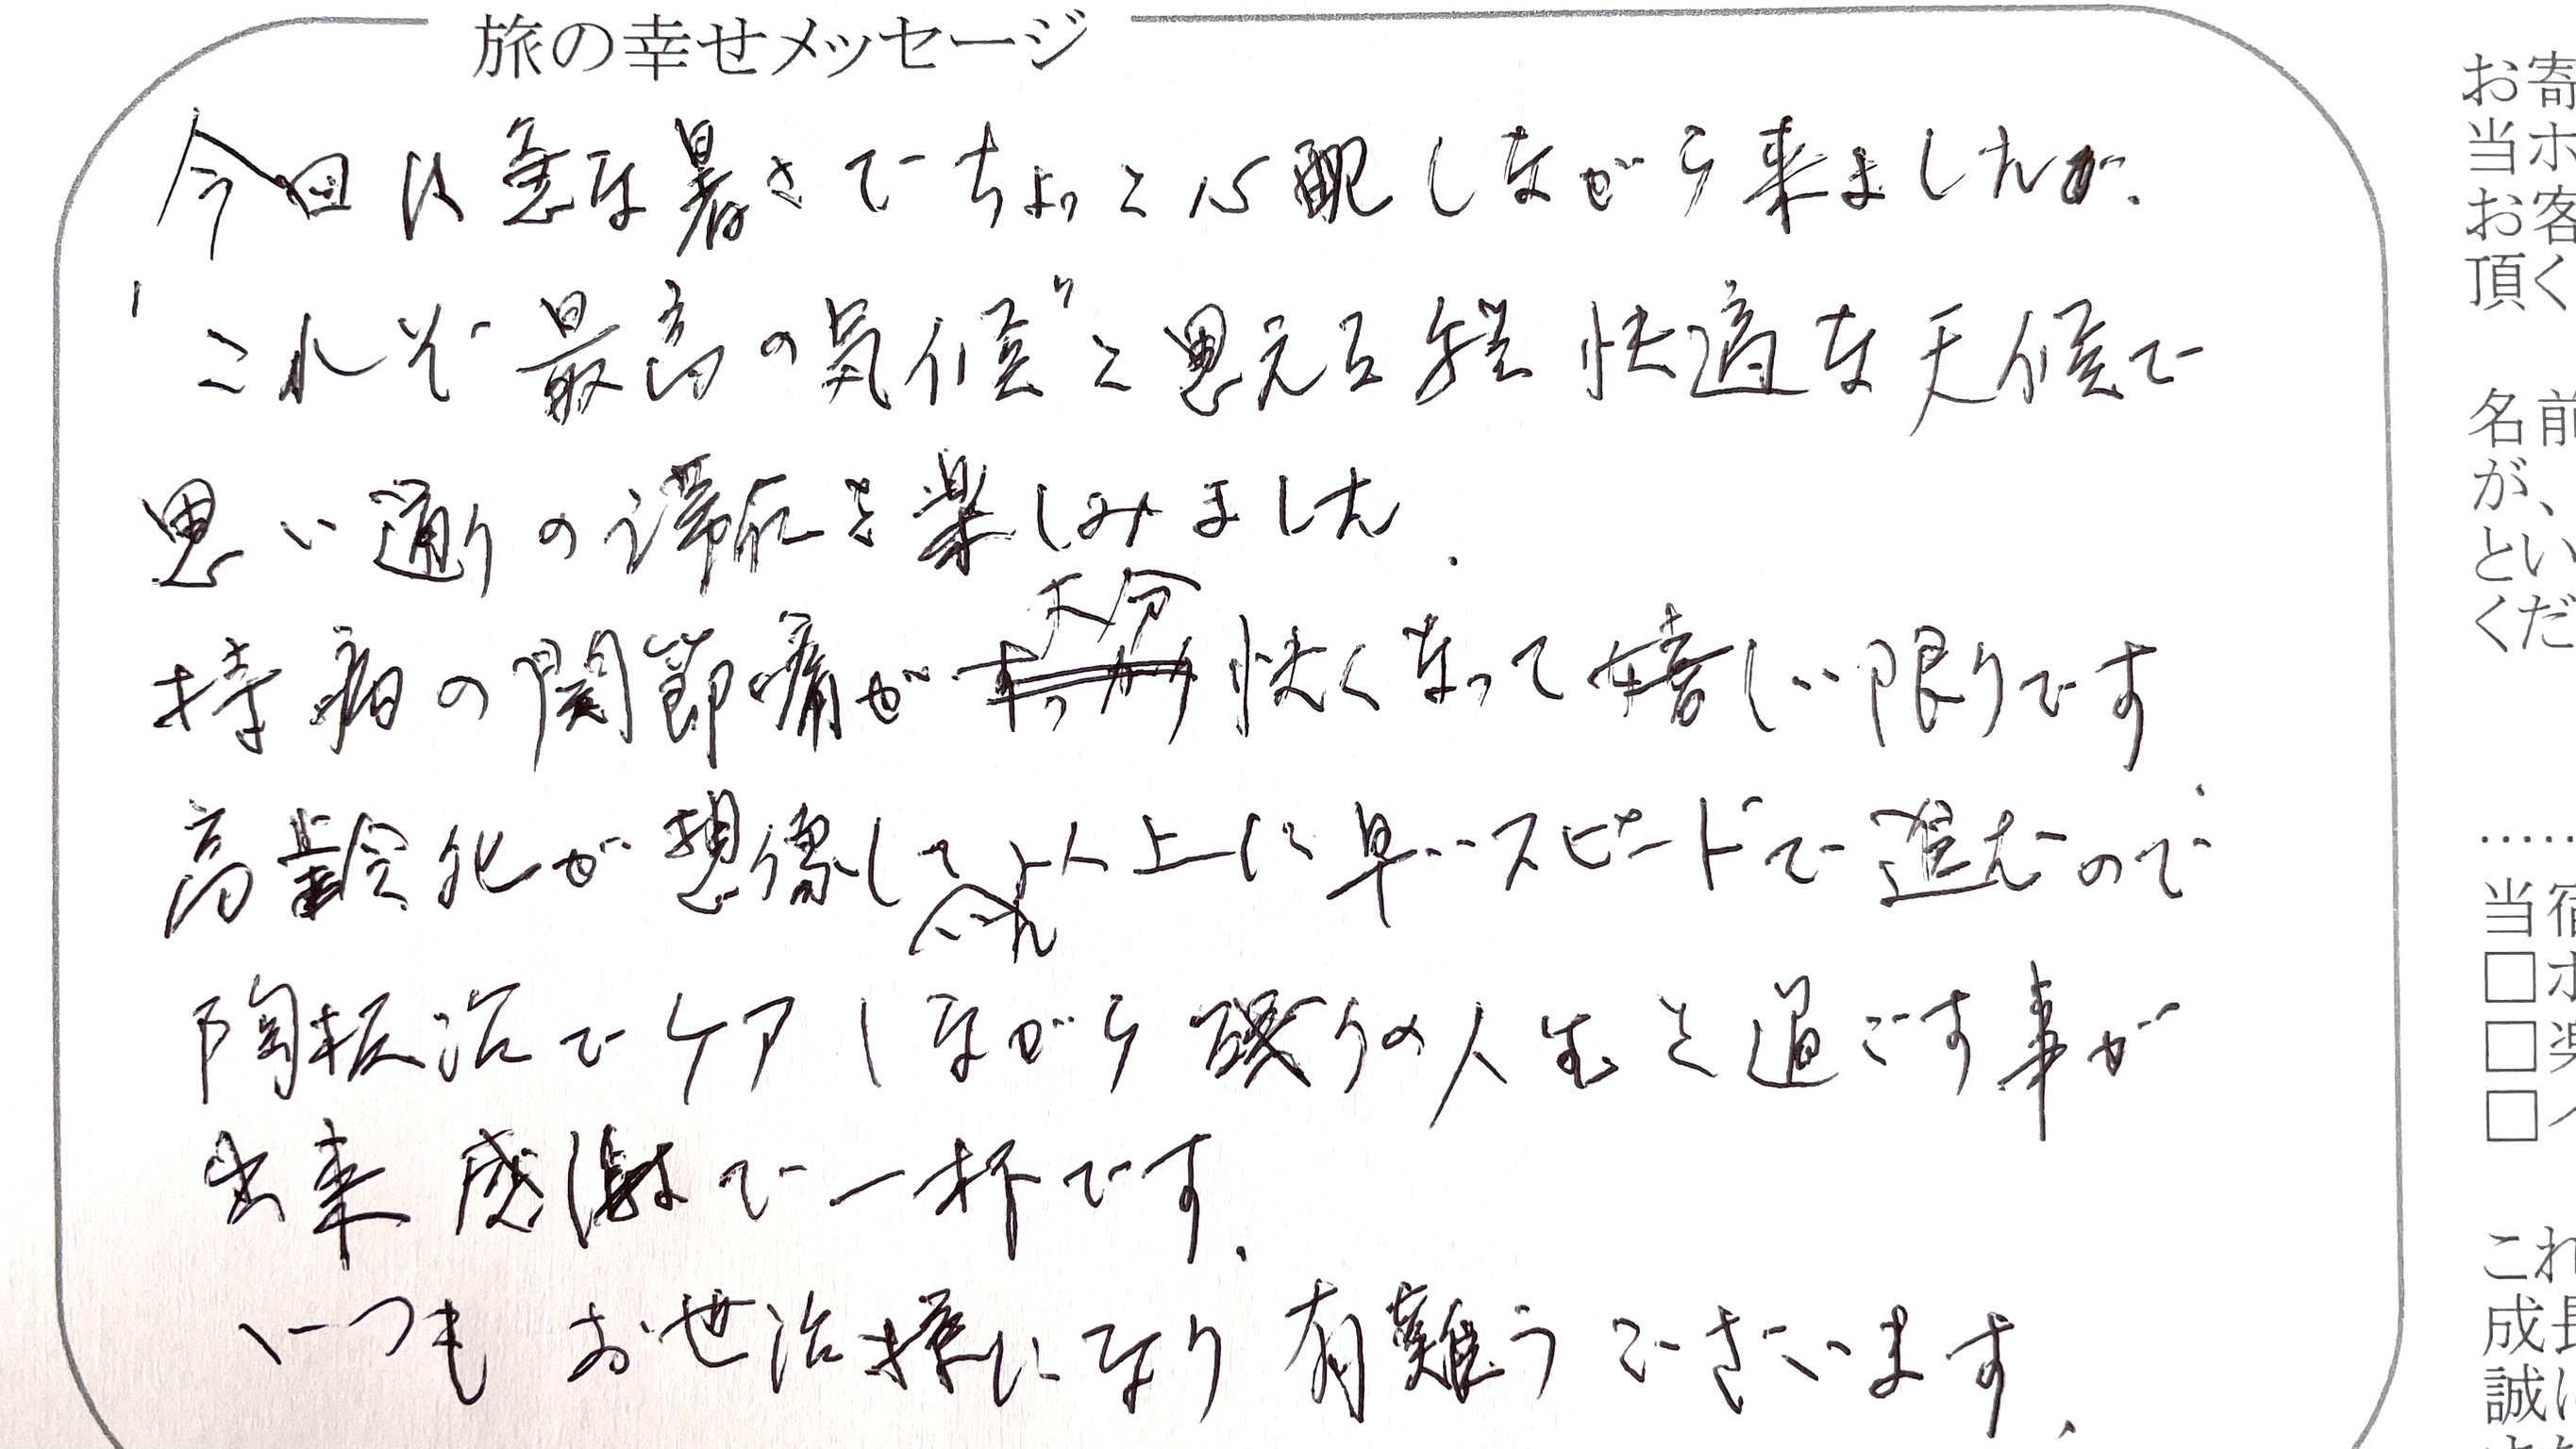 旅の幸せメッセージ
今回は急な暑さでちょっと心配しながら来ましたが、
"これぞ最高の気候"と思える程快適な天候で
思い通りの滞在を楽しみました。
持病の関節痛が大分快くなって嬉しい限りです。
高齢化が想像していた以上に早いスピードで進むので
陶板浴でケアしながら残りの人生を過ごす事が
出来感謝で一杯です。
いつもお世治様になり有難うございます。
お寄
当ホ
お客
頂く
名前
が、
とい
くだ
……
当宿
□ホ
□楽
□イ
これ
成長
誠に